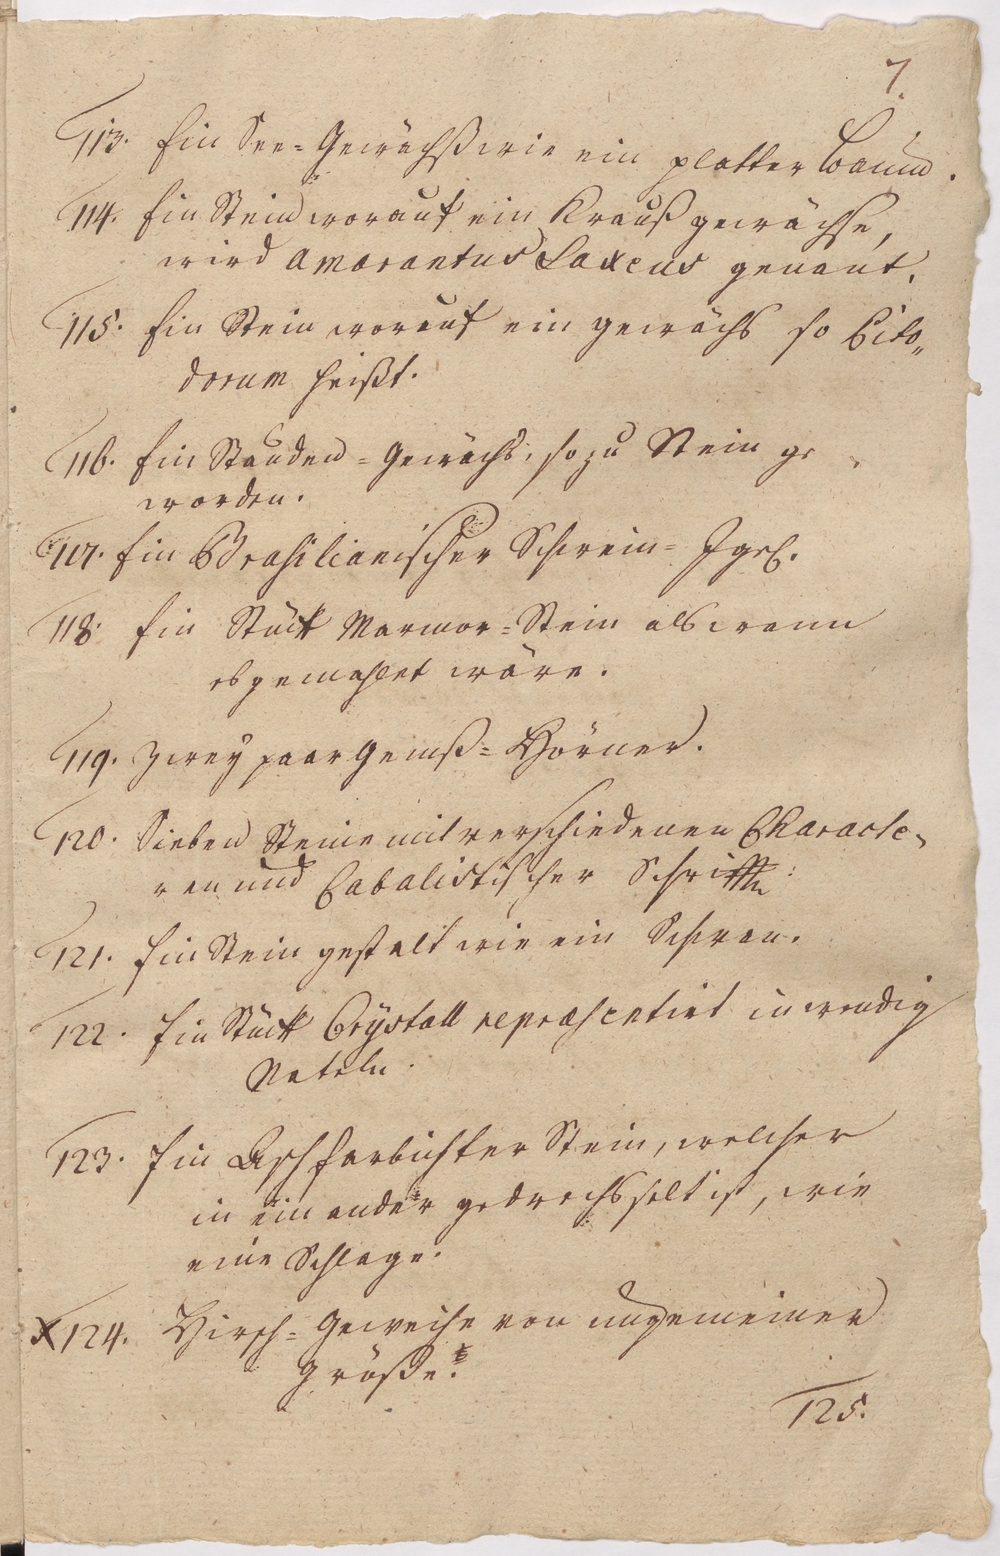 7.
113. Ein See-Gewächß wie ein platter Baum.
114. Ein Stein worauf ein Krauß gewächse,
wird Amarantus Saxeus genant.
115. Ein Stein worauf ein gewächs so Cito„
dorum heißt.
116. Ein Stauden-Gewächs, so zu Stein ge
worden.
117. Ein Brasilianischer Schwein-Igel.
118. Ein Stück Marmor-Stein als wann
es gemahlet wäre.
119. Zwey paar Gemß-Hörner.
120. Sieben Steine mit verschiedenen Characte-
ren und Cabalistischer Schrifft
121. Ein Stein gestalt wie ein Schwan.
122. Ein Stück Crystall repraesentirt inwendig
Nateln.
123. Ein Aschfarbichter Stein, welcher
in ein ander gedrechsselt ist, wie
eine Schlage.
X 124. Hirsch-Geweihe von ungemeiner
größe.
125.